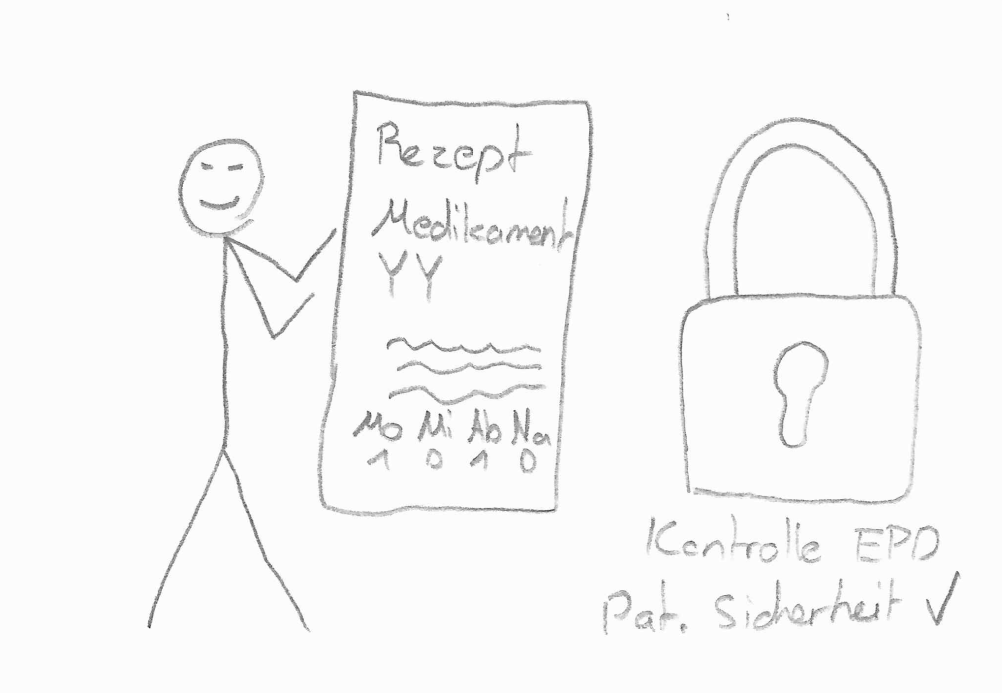 Rezept
Medikament
YY
Mo Mi Ab Na
1 0 1 0
Kontrolle EPD
Pat. Sicherheit ✓